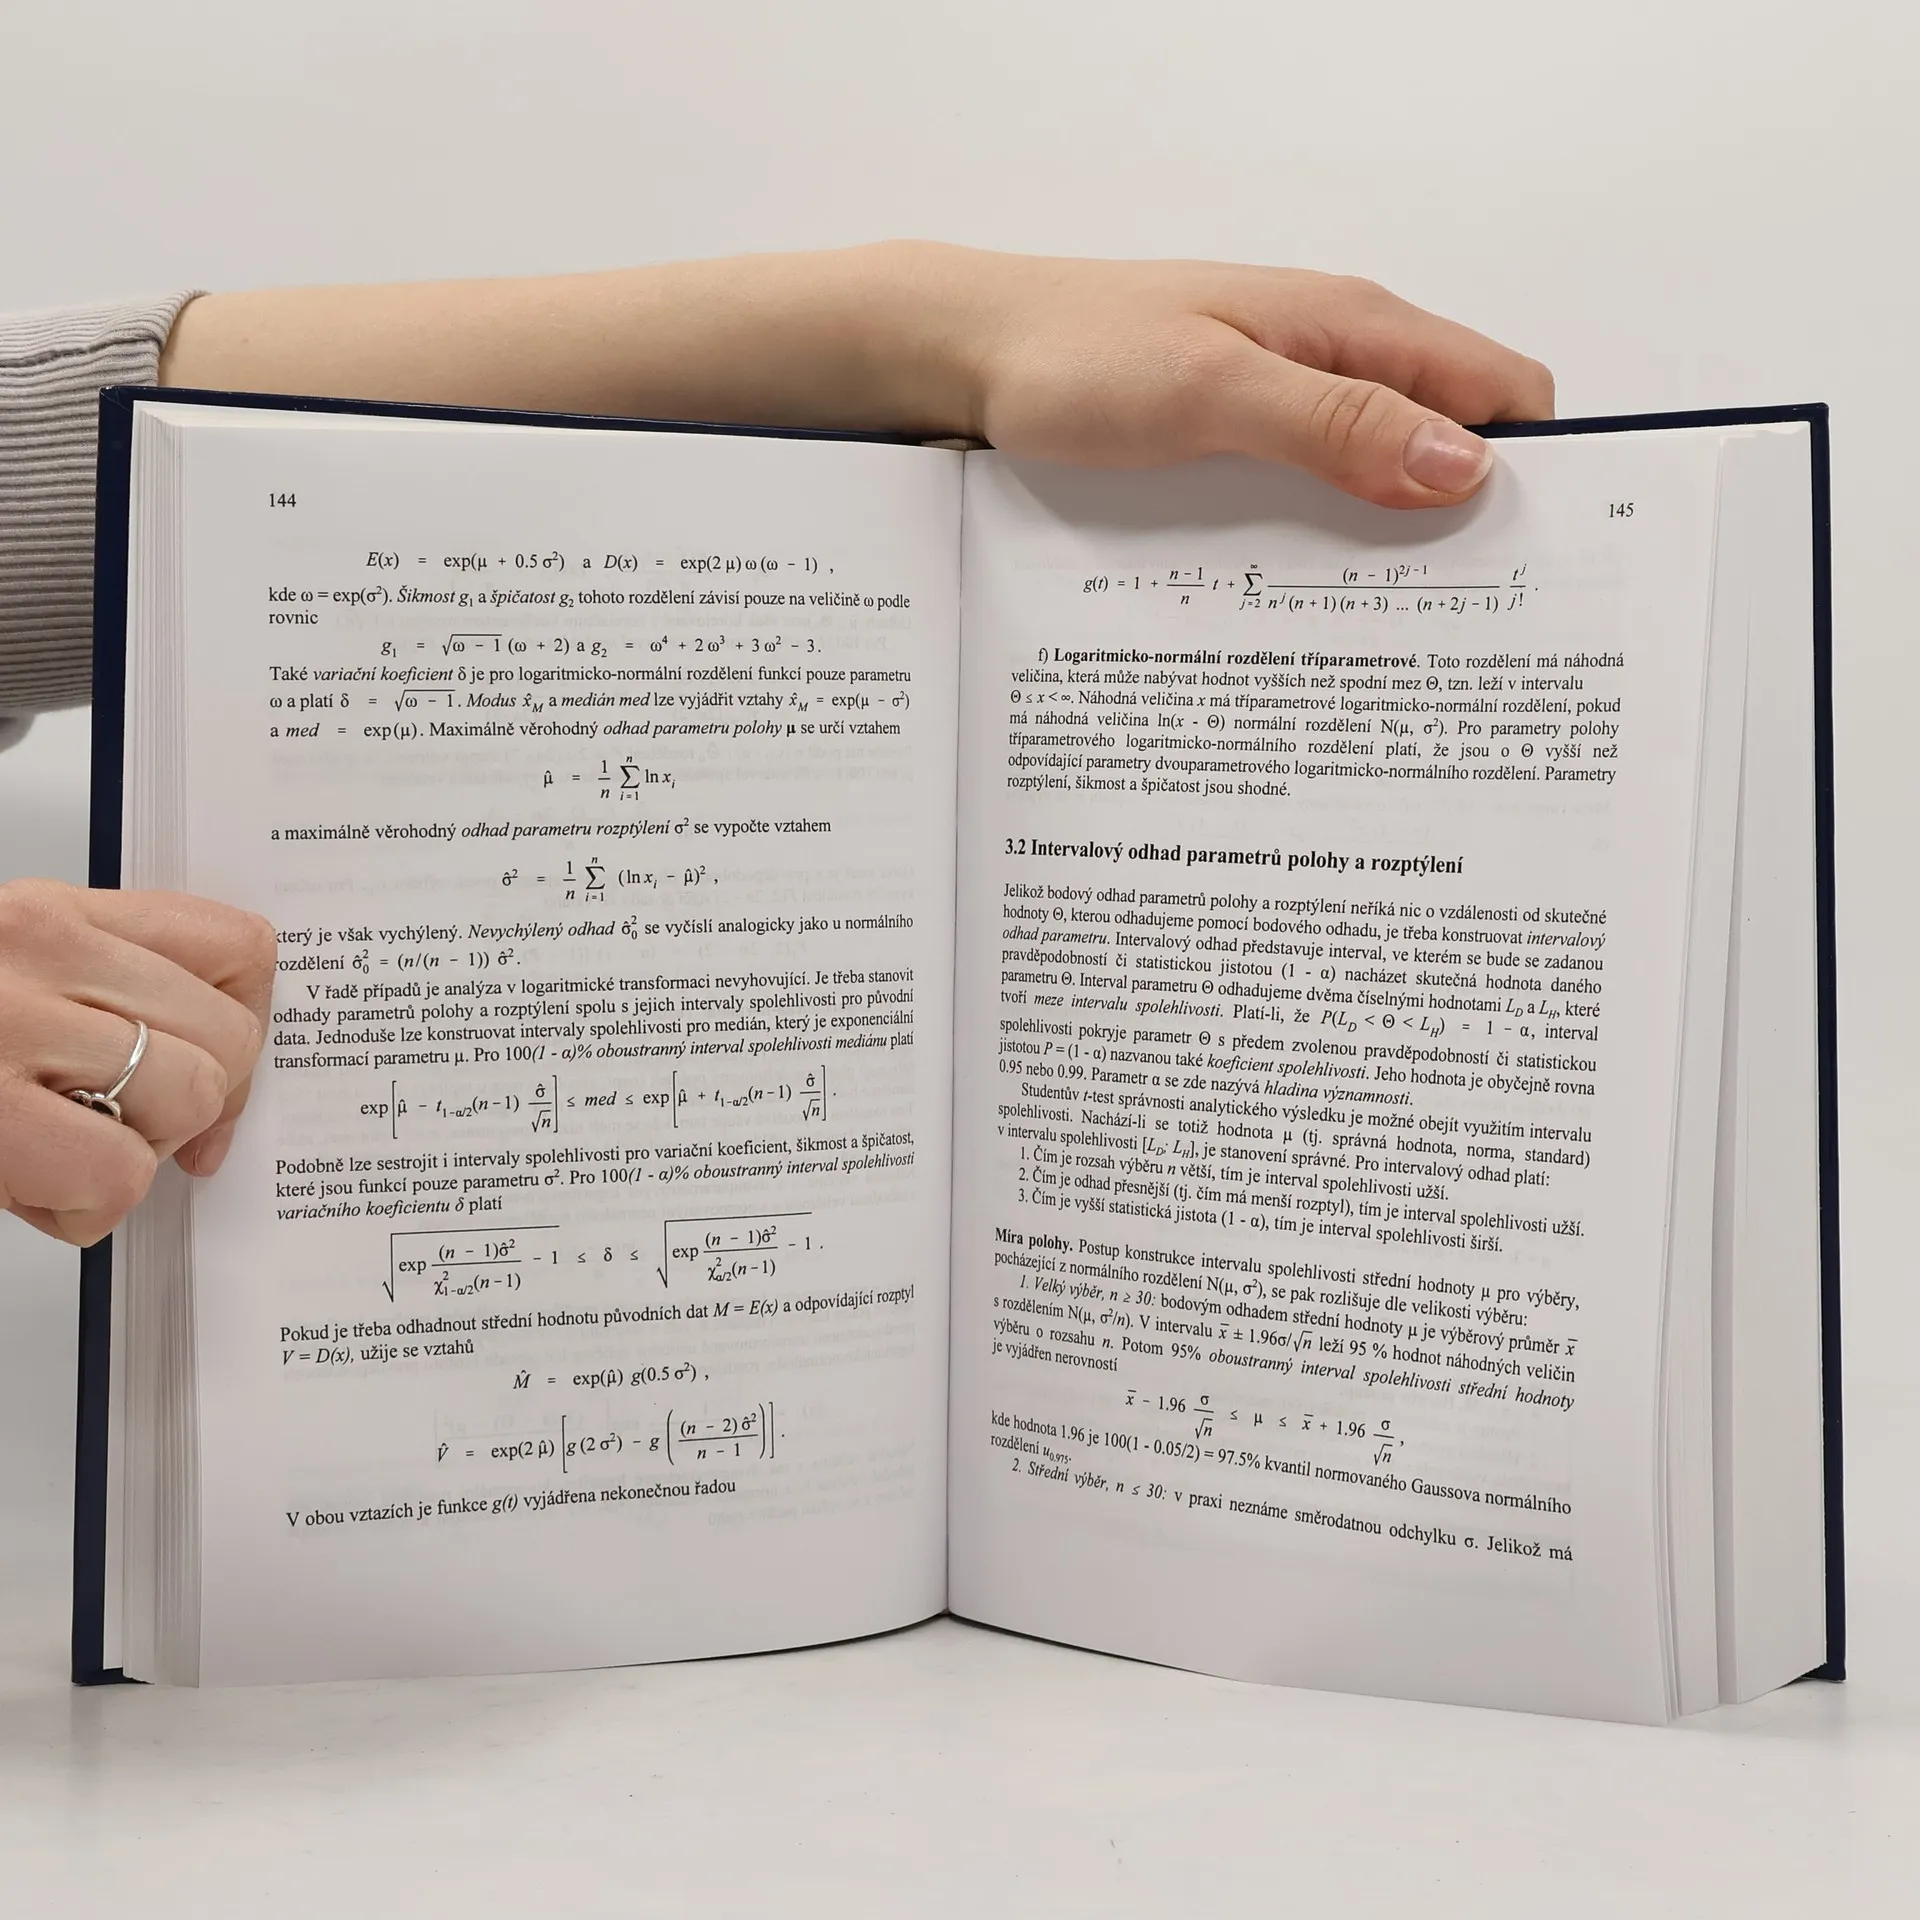 144
E(x) = exp(μ + 0.5 σ²) a D(x) = exp(2 μ) ω (ω − 1) ,
kde ω = exp(σ²). Šikmost g₁ a špičatost g₂ tohoto rozdělení závisí pouze na veličině ω podle
rovnic
g₁ = √(ω − 1) (ω + 2) a g₂ = ω⁴ + 2 ω³ + 3 ω² − 3.
Také variační koeficient δ je pro logaritmicko-normální rozdělení funkcí pouze parametru
ω a platí δ = √(ω − 1). Modus x̂_M a medián med lze vyjádřit vztahy x̂_M = exp(μ − σ²)
a med = exp(μ). Maximálně věrohodný odhad parametru polohy μ se určí vztahem
μ̂ = 1/n ∑_{i=1}^{n} ln x_i
a maximálně věrohodný odhad parametru rozptýlení σ² se vypočte vztahem
σ̂² = 1/n ∑_{i=1}^{n} (ln x_i − μ̂)² ,
který je však vychýlený. Nevychýlený odhad σ̂₀² se vyčíslí analogicky jako u normálního
rozdělení σ̂₀² = (n/(n − 1)) σ̂².
V řadě případů je analýza v logaritmické transformaci nevyhovující. Je třeba stanovit
odhady parametrů polohy a rozptýlení spolu s jejich intervaly spolehlivosti pro původní
data. Jednoduše lze konstruovat intervaly spolehlivosti pro medián, který je exponenciální
transformací parametru μ. Pro 100(1 - α)% oboustranný interval spolehlivosti mediánu platí
exp[μ̂ − t_{1−α/2}(n−1) σ̂/√n] ≤ med ≤ exp[μ̂ + t_{1−α/2}(n−1) σ̂/√n].
Podobně lze sestrojit i intervaly spolehlivosti pro variační koeficient, šikmost a špičatost,
které jsou funkcí pouze parametru σ². Pro 100(1 - α)% oboustranný interval spolehlivosti
variačního koeficientu δ platí
√(exp (n − 1)σ̂²/χ²_{1−α/2}(n−1) − 1) ≤ δ ≤ √(exp (n − 1)σ̂²/χ²_{α/2}(n−1) − 1) .
Pokud je třeba odhadnout střední hodnotu původních dat M = E(x) a odpovídající rozptyl
V = D(x), užije se vztahů
M̂ = exp(μ̂) g(0.5 σ²) ,
V̂ = exp(2 μ̂) [g (2 σ²) − g ((n − 2) σ̂²/(n − 1))] .
V obou vztazích je funkce g(t) vyjádřena nekonečnou řadou
145
g(t) = 1 + (n−1)/n t + ∑_{j=2}^{∞} (n − 1)^{2j−1}/(n^j (n + 1) (n + 3) ... (n + 2j − 1)) t^j/j! .
f) Logaritmicko-normální rozdělení tříparametrové. Toto rozdělení má náhodná
veličina, která může nabývat hodnot vyšších než spodní mez Θ, tzn. leží v intervalu
Θ ≤ x < ∞. Náhodná veličina x má tříparametrové logaritmicko-normální rozdělení, pokud
má náhodná veličina ln(x - Θ) normální rozdělení N(μ, σ²). Pro parametry polohy
tříparametrového logaritmicko-normálního rozdělení platí, že jsou o Θ vyšší než
odpovídající parametry dvouparametrového logaritmicko-normálního rozdělení. Parametry
rozptýlení, šikmost a špičatost jsou shodné.
3.2 Intervalový odhad parametrů polohy a rozptýlení
Jelikož bodový odhad parametrů polohy a rozptýlení neříká nic o vzdálenosti od skutečné
hodnoty Θ, kterou odhadujeme pomocí bodového odhadu, je třeba konstruovat intervalový
odhad parametru. Intervalový odhad představuje interval, ve kterém se bude se zadanou
pravděpodobností či statistickou jistotou (1 - α) nacházet skutečná hodnota daného
parametru Θ. Interval parametru Θ odhadujeme dvěma číselnými hodnotami L_D a L_H, které
tvoří meze intervalu spolehlivosti. Platí-li, že P(L_D < Θ < L_H) = 1 − α, interval
spolehlivosti pokryje parametr Θ s předem zvolenou pravděpodobností či statistickou
jistotou P = (1 - α) nazvanou také koeficient spolehlivosti. Jeho hodnota je obyčejně rovna
0.95 nebo 0.99. Parametr α se zde nazývá hladina významnosti.
Studentův t-test správnosti analytického výsledku je možné obejít využitím intervalu
spolehlivosti. Nachází-li se totiž hodnota μ (tj. správná hodnota, norma, standard)
v intervalu spolehlivosti [L_D; L_H], je stanovení správné. Pro intervalový odhad platí:
1. Čím je rozsah výběru n větší, tím je interval spolehlivosti užší.
2. Čím je odhad přesnější (tj. čím má menší rozptyl), tím je interval spolehlivosti užší.
3. Čím je vyšší statistická jistota (1 - α), tím je interval spolehlivosti širší.
Míra polohy. Postup konstrukce intervalu spolehlivosti střední hodnoty μ pro výběry,
pocházející z normálního rozdělení N(μ, σ²), se pak rozlišuje dle velikosti výběru:
1. Velký výběr, n ≥ 30: bodovým odhadem střední hodnoty μ je výběrový průměr x̄
s rozdělením N(μ, σ²/n). V intervalu x̄ ± 1.96σ/√n leží 95 % hodnot náhodných veličin
výběru o rozsahu n. Potom 95% oboustranný interval spolehlivosti střední hodnoty
je vyjádřen nerovností
x̄ − 1.96 σ/√n ≤ μ ≤ x̄ + 1.96 σ/√n ,
kde hodnota 1.96 je 100(1 - 0.05/2) = 97.5% kvantil normovaného Gaussova normálního
rozdělení u_{0.975}.
2. Střední výběr, n ≤ 30: v praxi neznáme směrodatnou odchylku σ. Jelikož má